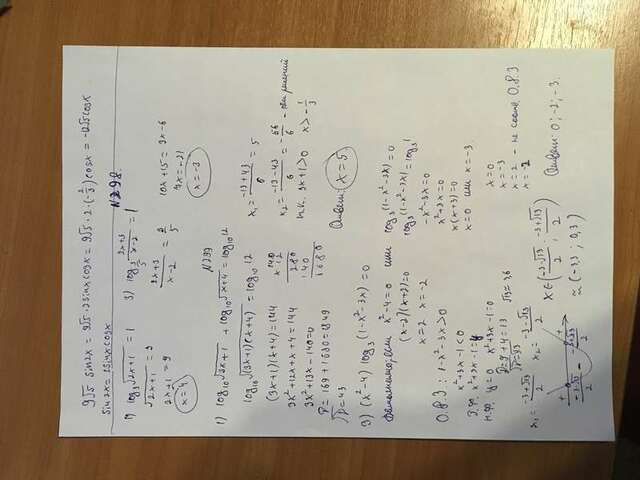 9√5 sin2x = 9√5 · 2sinxcosx = 9√5 · 2 · (-2/3) cosx = -12√5cosx
sin2x = 2sinxcosx
N298.
1) log₃√(2x+1) = 1
√(2x+1) = 3
2x+1 = 9
x = 4
3) log (3x+3)/(x-2) = 1
(3x+3)/(x-2) = 2/5
10x+15 = 3x-6
7x = -21
x = -3
N299
1) log₁₀√(3x+1) + log₁₀√(x+4) = log₁₀12
log₁₀√((3x+1)(x+4)) = log₁₀12
(3x+1)(x+4) = 144
3x²+12x+x+4 = 144
3x²+13x-140=0
D = 169+1680=1849
√D = 43
140
× 12
280
140
1680
x₁ = (-13+43)/6 = 5
x₂ = (-13-43)/6 = -56/6 -
т.к. 3x+1>0 x>-1/3
Ответ: x=5
3) (x²-4) log₃(1-x²-3x) = 0
x²-4=0 или log₃(1-x²-3x) = 0
(x-2)(x+2)=0
x=2 x=-2
log₃(1-x²-3x) = log₃1
-x²-3x=0
x²+3x=0
x(x+3)=0
x=0 или x=-3
О.Д.З.: 1-x²-3x>0
x²+3x-1<0
x²+3x-1=y
y=0 x²+3x-1=0
D=9+4=13
√13≈3,6
x₁ = (-3+√13)/2 x₂ = (-3-√13)/2
+ - +
(-3-√13)/2 (-3+√13)/2
x∈((-3-√13)/2 ; (-3+√13)/2)
≈ (-3,3 ; 0,3)
x=0
x=-3
x=2 - не соотв. О.Д.З
x=-2
Ответ: 0; -2; -3.